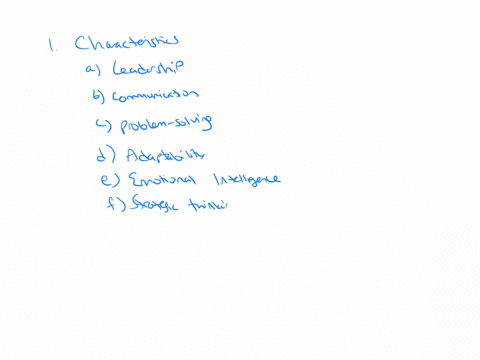 1. Characteristics
a) Leadership
b) Communication
c) Problem-solving
d) Adaptability
e) Emotional Intelligence
f) Strategic thinki